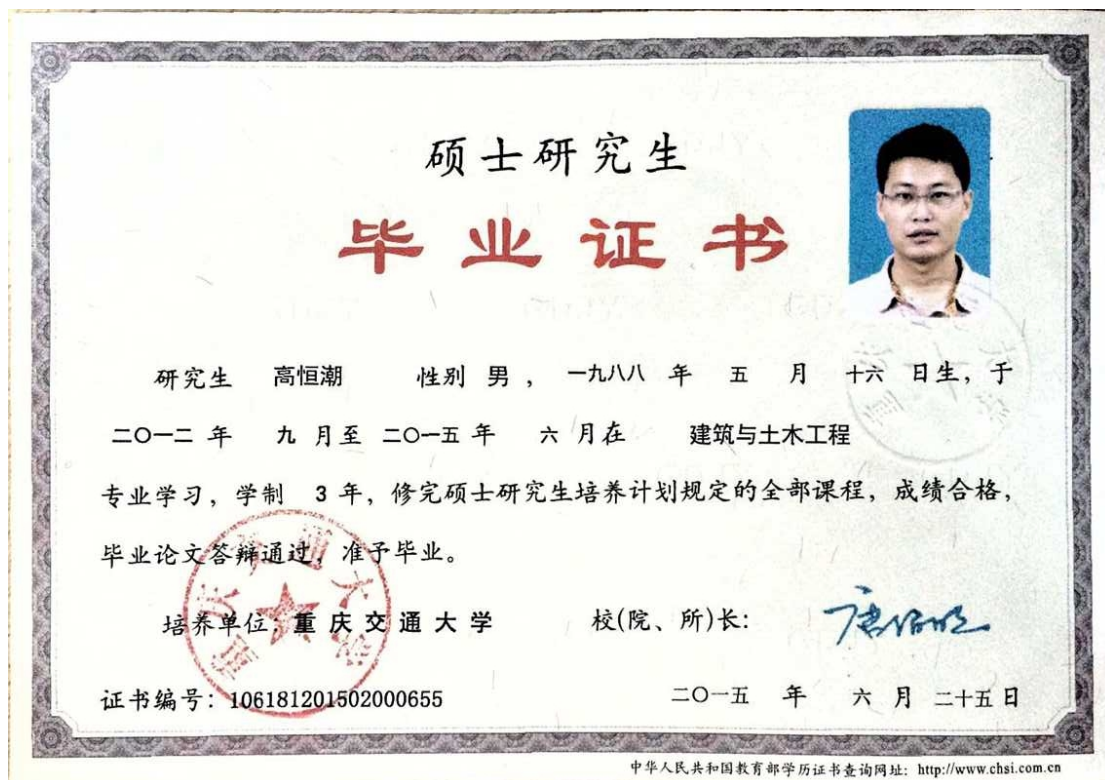 硕士研究生
毕业证书
研究生 高恒潮 性别 男 ， 一九八八 年 五 月 十六 日生，于
二〇一二 年 九 月至 二〇一五 年 六 月在 建筑与土木工程
专业学习，学制 3 年，修完硕士研究生培养计划规定的全部课程，成绩合格，
毕业论文答辩通过，准予毕业。
培养单位：重庆交通大学 校(院、所)长：
重庆交通大学
证书编号：106181201502000655 二〇一五 年 六 月 二十五 日
中华人民共和国教育部学历证书查询网址：http://www.chsi.com.cn